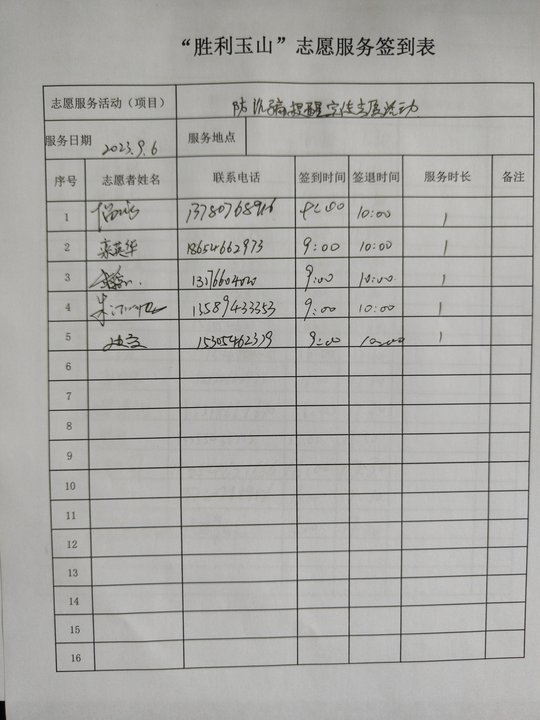 “胜利玉山”志愿服务签到表
志愿服务活动（项目） 防沉溺提醒宣传志愿活动
服务日期 2023.9.6 服务地点
序号 志愿者姓名 联系电话 签到时间 签退时间 服务时长 备注
1 10:00 1
2 栾英华 18654662973 9:00 10:00 1
3 9:00 10:00 1
4 13589433353 9:00 10:00 1
5 15305462379 9:00 10:00 1
6
7
8
9
10
11
12
13
14
15
16